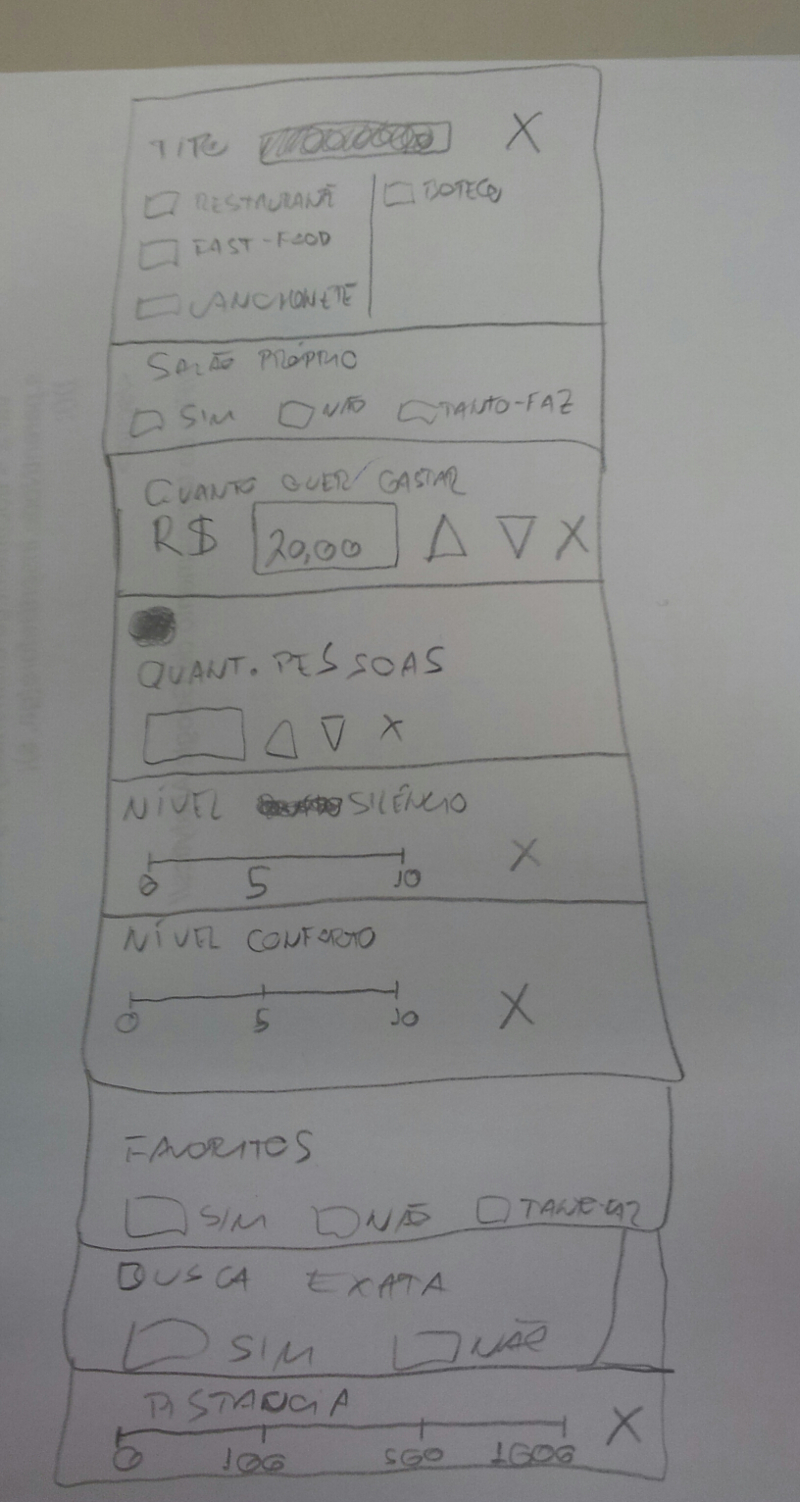 TIPO X
RESTAURANTE BOTECO
FAST-FOOD
LANCHONETE
SALÃO PRÓPRIO
SIM NÃO TANTO-FAZ
QUANTO QUER GASTAR
R$ 20,00 X
QUANT. PESSOAS
X
NÍVEL SILÊNCIO
X
0 5 10
NÍVEL CONFORTO
X
0 5 10
FAVORITOS
SIM NÃO TANTO-FAZ
BUSCA EXATA
SIM NÃO
DISTANCIA
X
0 100 500 1000